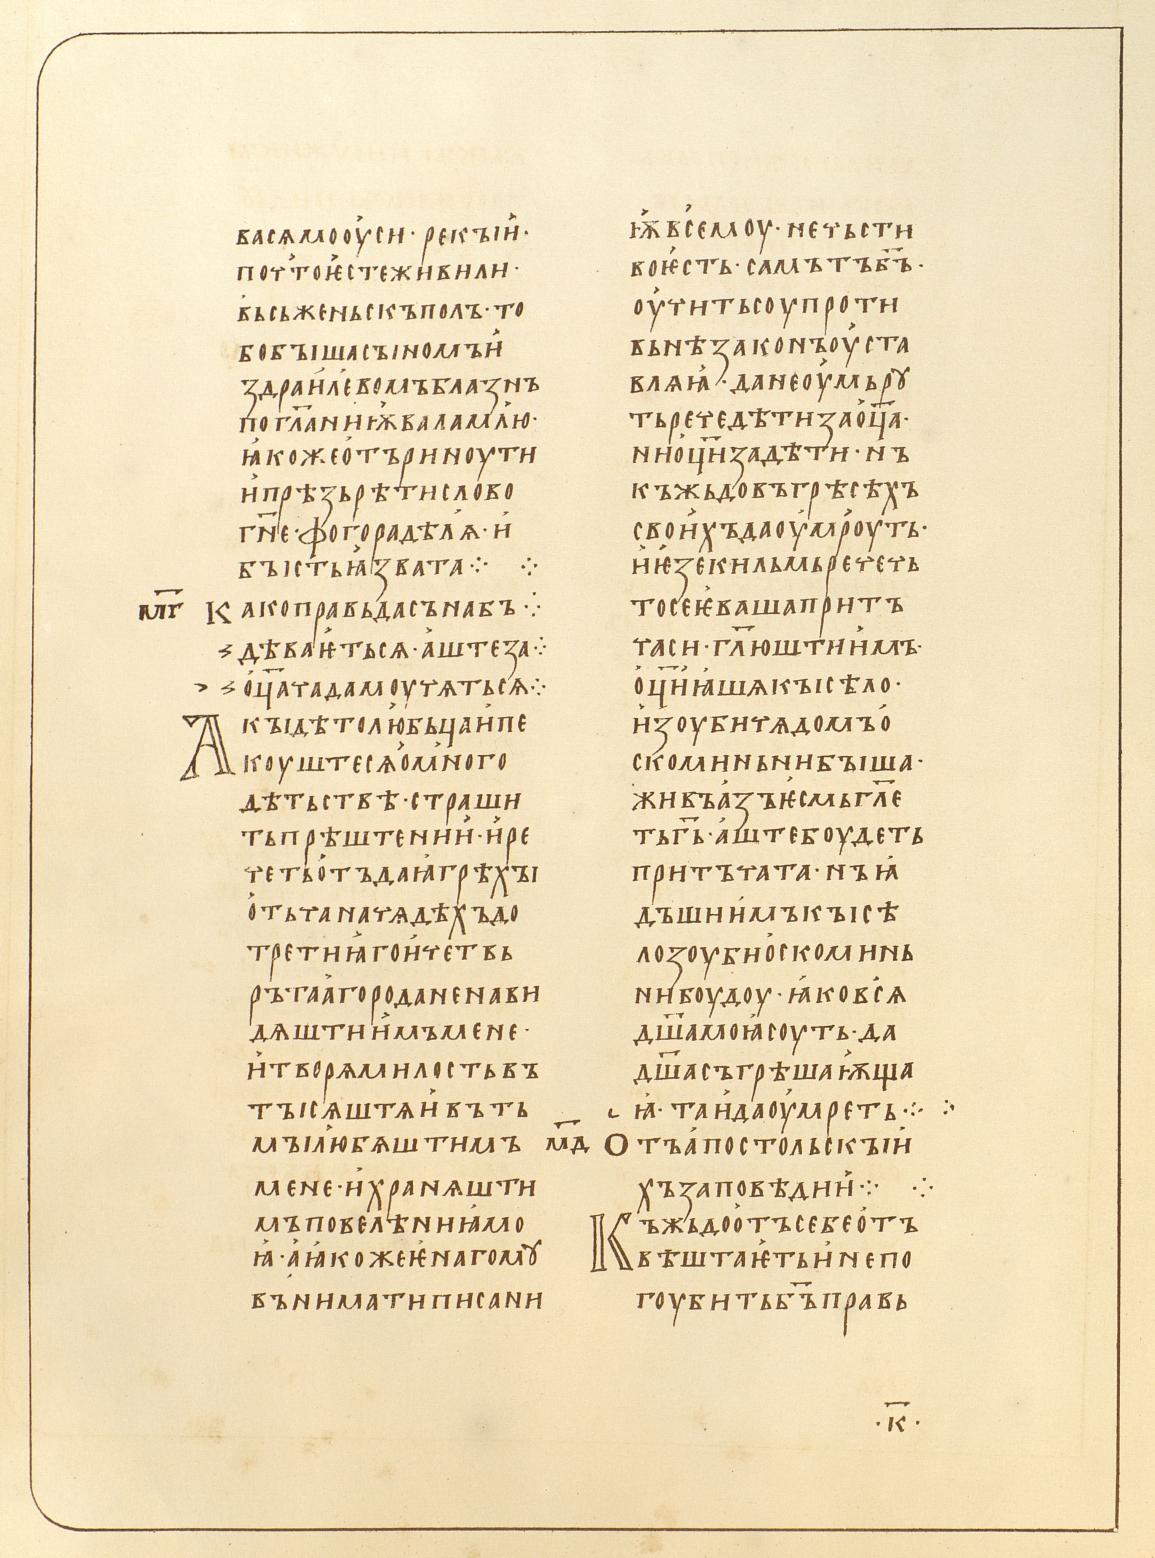 вас ѧмо оу̓си · рекꙑи̓ ·
почто ѥ̓сте живили ·
вьсь женьскъ полъ · то
бо бꙑша сꙑномъ и̓
здраи̓левомъ блазнъ
по гл҃аниѭ валамлю ·
ꙗ̓коже о̓търинѹти
и̓ прѣзьрѣти слово
гн҃е · фогора дѣлꙗ · и̓
бꙑсть ꙗ̓зва та ⁘ ⁘
мг҃ Како правьда съ набъ ⁘
дѣваѥ̓тьсѧ · а̓ште за ⁘
о̓ц҃а чада моучѧтьсѧ ⁘
Акꙑ дѣтолюбьца и̓ пе
коуште сѧ о̓ много
дѣтьствѣ · страши
ть прѣштении̓ · и̓ ре
четь о̓тъдаꙗ̓ грѣхꙑ
о̓тьча на чѧдѣхъ до
третиꙗ̓го и̓ четвь
рътаа̓го рода ненави
дѧштии̓мъ мене ·
и̓ творѧ милость въ
тꙑсѧштѧ и̓ въ ть
мꙑ любѧштимъ
мене · и̓ хранѧшти
мъ повелѣниꙗ̓ мо
ꙗ̓ · а̓ ꙗ̓коже ѥ̓ на гомꙋ
вънимати писани
ѭ̓ вьсемоу · нечьсти
во ѥ̓сть · самъ тъ б҃ъ ·
оу̓чить соупроти
вьнѣ законъ оу̓ста
влꙗꙗ̓ · да не оу̓мьрꙋ
ть рече дѣти за о̓ц҃а ·
ни о̓ц҃и за дѣти · нъ
къжьдо въ грѣсѣхъ
своихъ да оу̓мроуть ·
и̓ ѥ̓зекиильмь речеть
то се ѥ̓ ваша прить
ча си · гл҃юштиимъ ·
о̓ц҃и ꙗ̓шѧ кꙑсѣло ·
и̓ зоуби чѧдомъ о̓
скоминьни бꙑша ·
живъ а̓зъ ѥ̓смь гл҃е
ть г҃ь · а̓ште боудеть
притъча та · нъ ꙗ̓
дъшии̓мъ кꙑсѣ
ло зоуби о̓скоминь
ни боудоу · ꙗ̓ко всѧ
дш҃а моꙗ̓ соуть · да
дш҃а съгрѣшаѭ̓щаа
ꙗ̓ · та и̓ да оу̓мреть ⁘ ⁘
мд҃ Отъ а̓постольскꙑи̓
хъ заповѣдии̓ ⁘ ⁘
Къжьдо о̓тъ себе о̓тъ
вѣштаѥ̓ть и̓ не по
гоубить б҃ъ правь
· к҃ ·